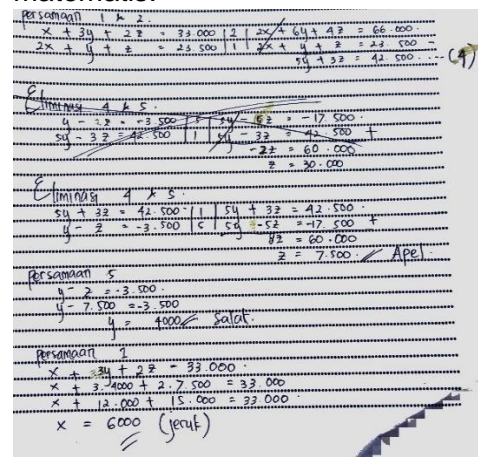 persamaan 1 & 2.
x + 3y + 2z = 33.000 | 2 | 2x + 6y + 4z = 66.000.
2x + y + z = 23.500 | 1 | 2x + y + z = 23.500 -
5y + 3z = 42.500 .... (4)
Eliminasi 4 & 5.
y - 2z = -3.500 | 5 | 5y - 5z = -17.500
5y - 3z = 42.500 | 1 | 5y - 3z = 42.500 +
-2z = 60.000
z = 30.000
Eliminasi 4 & 5.
5y + 3z = 42.500 | 1 | 5y + 3z = 42.500
y - z = -3.500 | 5 | 5y -5z = -17.500 +
8z = 60.000
z = 7.500 Apel
persamaan 5
y - z = -3.500.
y - 7.500 = -3.500
y = 4000 Salat.
persamaan 1
x + 3y + 2z = 33.000.
x + 3.4000 + 2.7.500 = 33.000
x + 12.000 + 15.000 = 33.000
x = 6000 (jeruk)